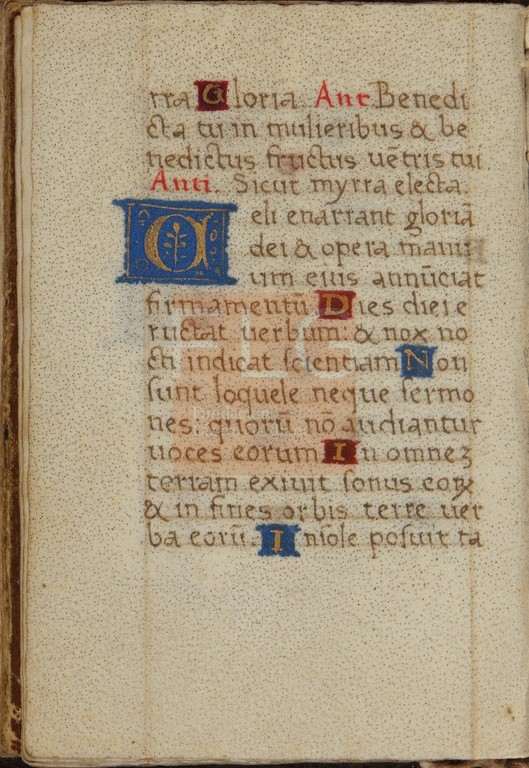 rra Gloria. Ant. Benedi
cta tu in mulieribus & be
nedictus fructus uētris tui
Anti. Sicut myrra electa.
Celi enarrant gloriā
dei & opera manu
um eius annūciat
firmamentū Dies diei e
ructat uerbum: & nox no
cti indicat scientiam Non
sunt loquele neque sermo
nes: quorū nō audiantur
uoces eorum In omneʒ
terram exiuit sonus eoꝝ
& in fines orbis terre uer
ba eorū. In sole posuit ta
FLG
Fundación